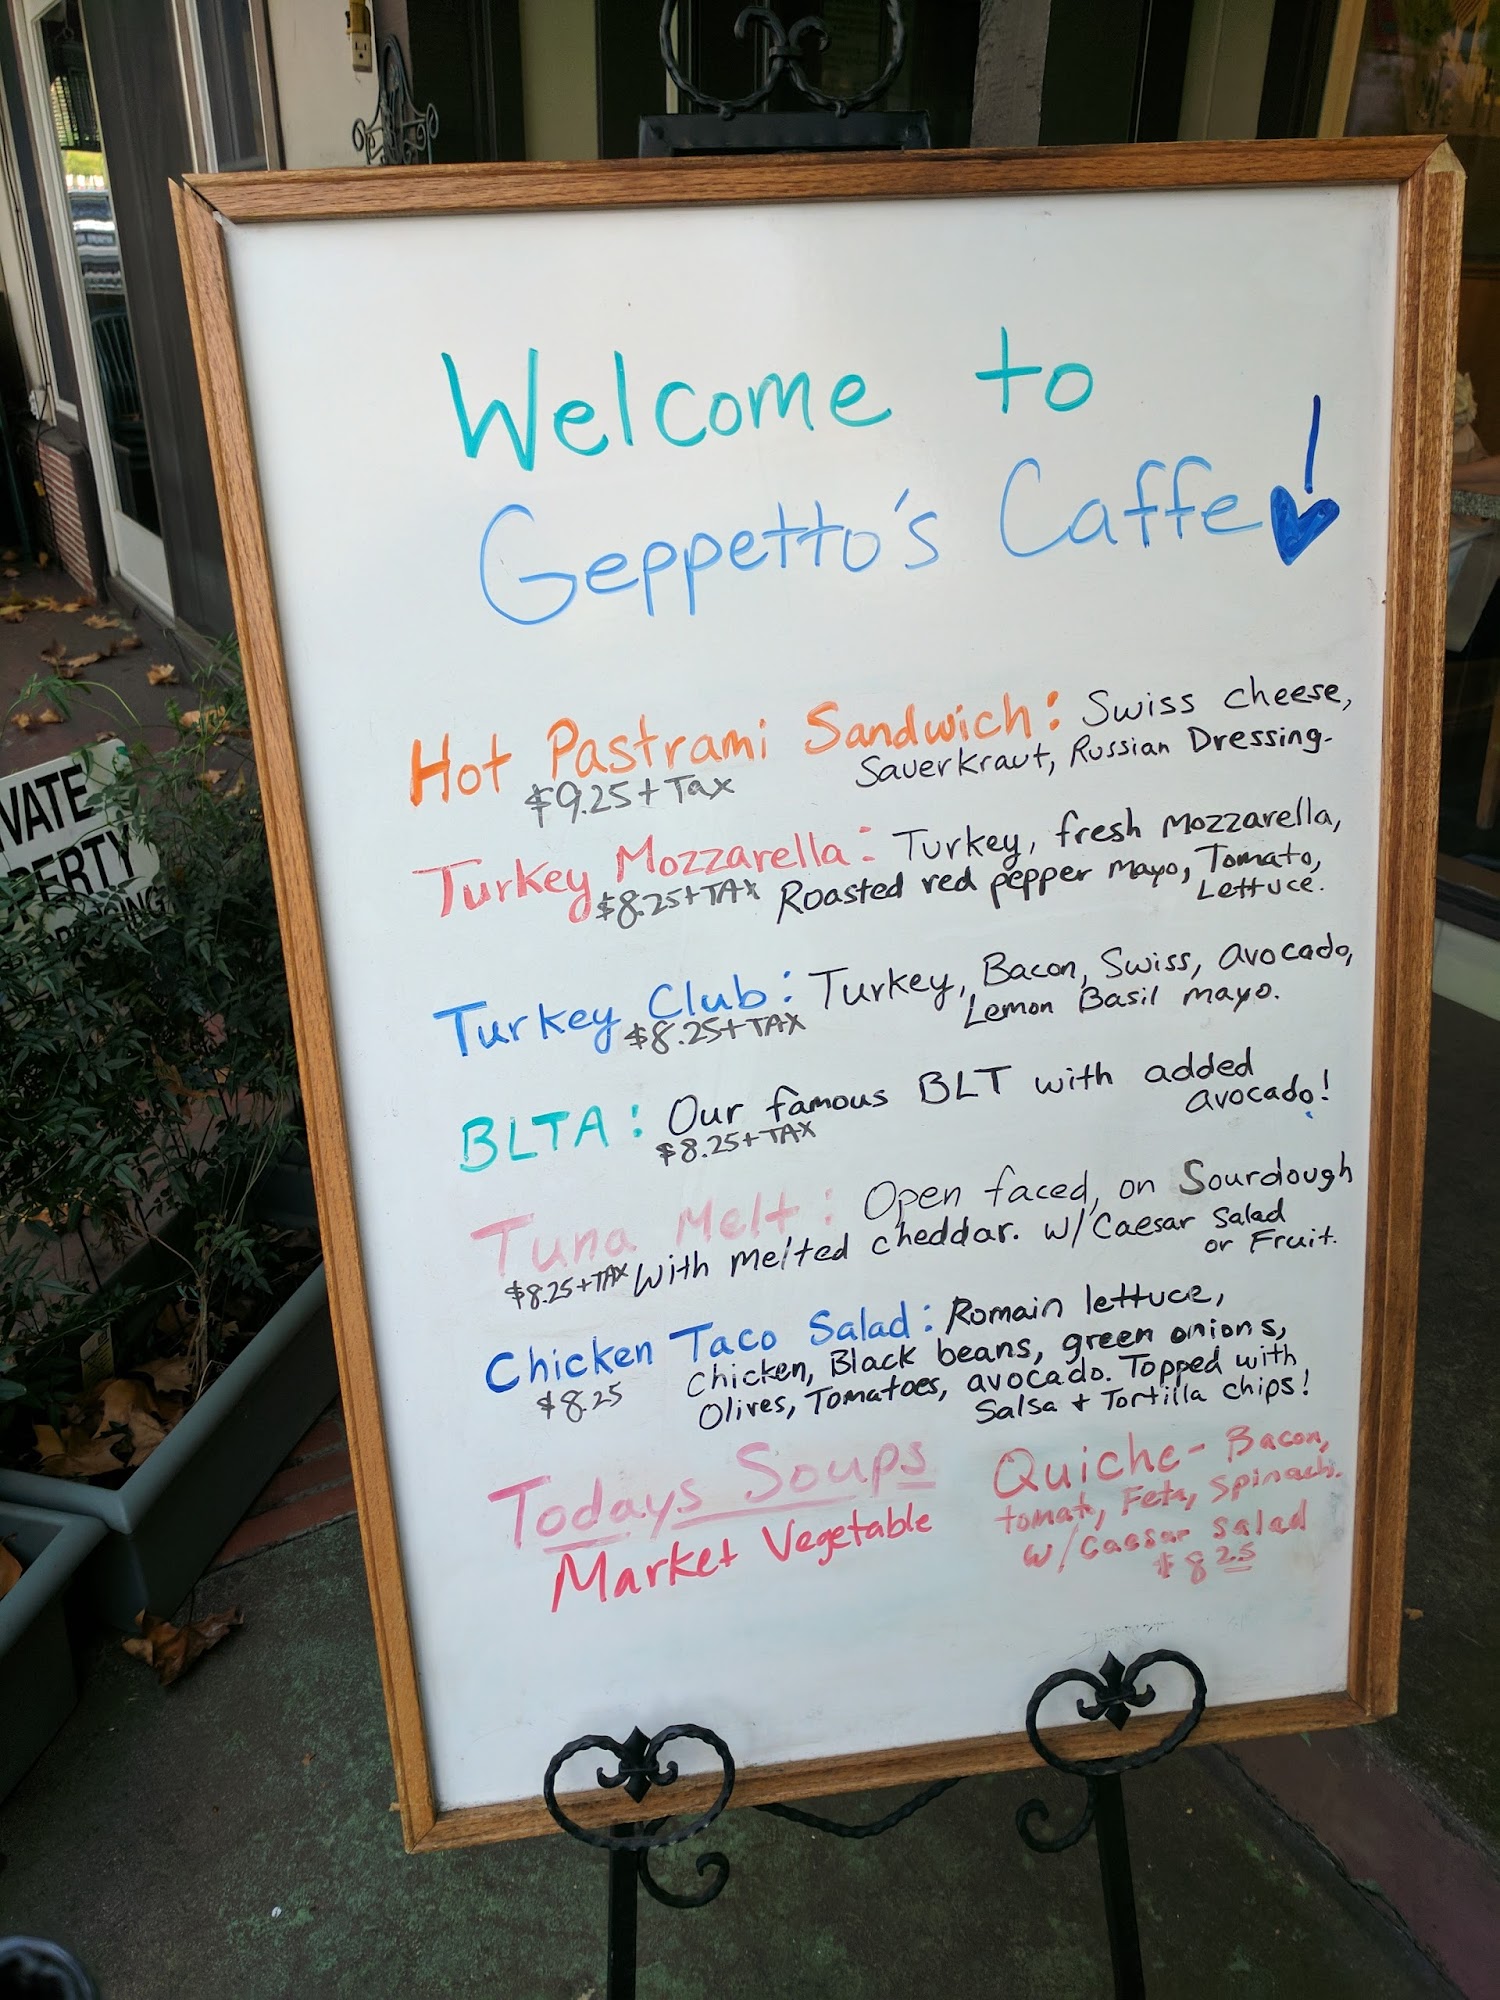 Welcome to
Geppetto's Caffe!
Hot Pastrami Sandwich: Swiss cheese,
$9.25+Tax Sauerkraut, Russian Dressing.
Turkey Mozzarella: Turkey, fresh Mozzarella,
$8.25+TAX Roasted red pepper mayo, Tomato,
Lettuce.
Turkey Club: Turkey, Bacon, Swiss, avocado,
$8.25+TAX Lemon Basil mayo.
BLTA: Our famous BLT with added
$8.25+TAX avocado!
Tuna Melt: Open faced, on Sourdough
$8.25+TAX with melted cheddar. w/Caesar Salad
or Fruit.
Chicken Taco Salad: Romain lettuce,
Chicken, Black beans, green onions,
$8.25 Olives, Tomatoes, avocado. Topped with
Salsa + Tortilla chips!
Todays Soups
Market Vegetable
Quiche- Bacon,
tomato, Feta, Spinach.
w/Caesar Salad
$8 25
VATE
PERTY